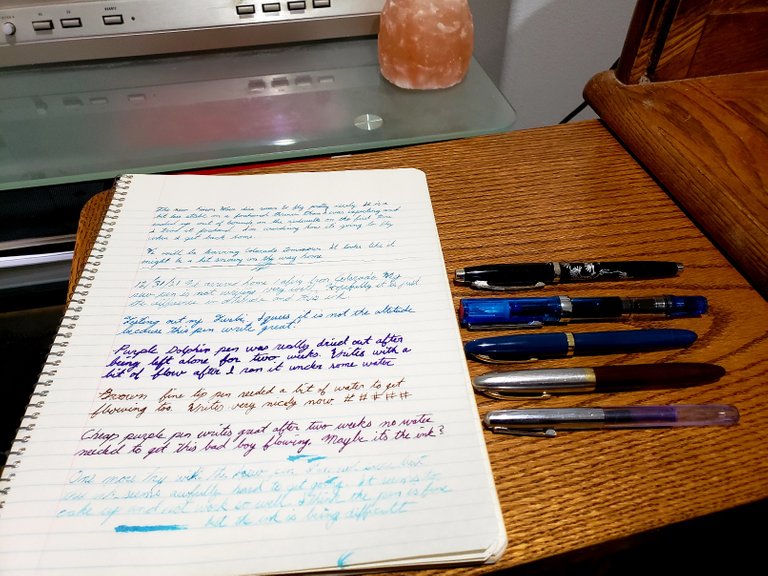 The new Fuson Wave disc seems to fly pretty nicely. It is a
bit less stable on a forehand thrown than I was expecting and
ended up out of bounds on the sidewalk on the first time
I tried it forehand. I'm wondering how it's going to fly
when I get back home.
We will be leaving Colorado tomorrow. It looks like it
might be a bit snowy on the way home
12/31/21 I arrived home today from Colorado. My
new pen is not writing very well. Hopefully it is just
the difference in altitude and this ink
Testing out my I guess it is not the altitude
because this pen write great!
Purple Dolphin pen was really dried out after
being left alone for two weeks. Writes with a
bit of flow after I ran it under some water
Brown fine tip pen needed a bit of water to get
flowing too. Writes very nicely now. # # # # #
Cheap purple pen writes great after two weeks no water
needed to get this bad boy flowing. Maybe its the ink?
One more try with the new pen
seems awfully hard to get going. It seems to
and not work so well. I think the pen is fine
but the ink is being difficult